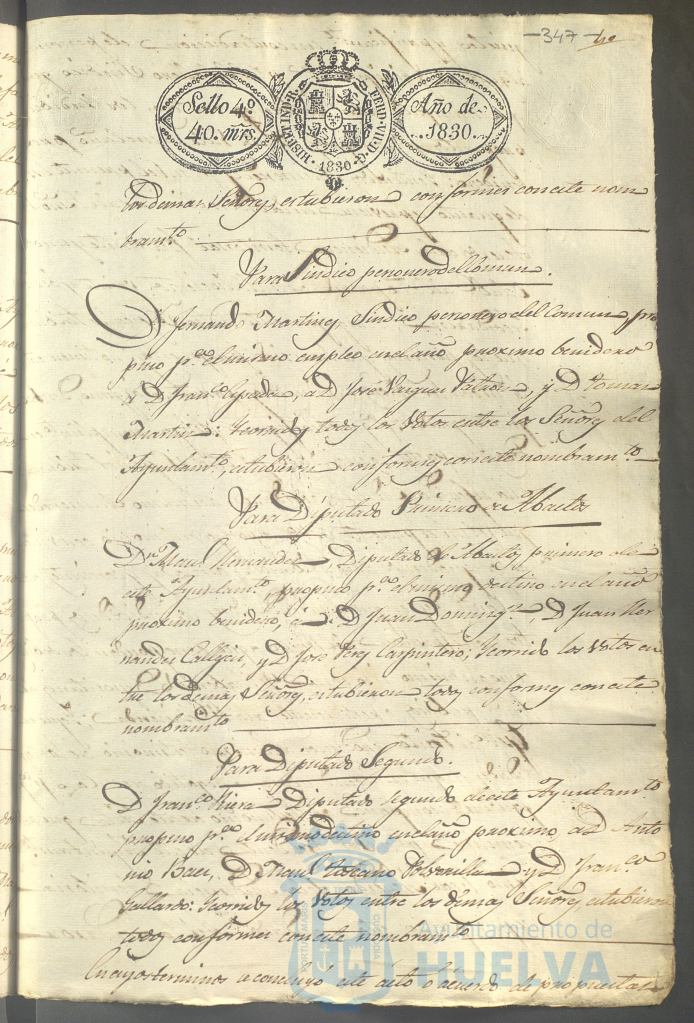 -347-
Sello 4º
40. mrs.
HISP. ET IND. R. FERD. VII. D. G. 1830
Año de
1830.
los demas Señores, estubieron conformes con este nom
bramto.
Para Sindico personero del Comun.
Dn Fernando Martinez, Sindico personero del Comun, pro
puso pa. el mismo empleo en el año proximo benidero
á D Franco Quesada, a D José Vazquez, y D Tomas
Martin: Y corridos todos los Votos entre los Señores del
Ayuntamto., estubieron conformes con este nombramto.
Para Diputado Primero de Abastos
Dn Manl. Hernandez, Diputado de Abastos, primero de
este Ayuntamto., propuso pa. el mismo destino en el año
proximo benidero, á D Juan Domingz., D Juan Her
nandez Callejas, y D José Perez Carpintero; Y corridos los Votos en
tre los demas Señores, estubieron todos conformes con este
nombramto.
Para Diputado Segundo.
D Franco Riera Diputado segundo de este Ayuntamto.
propuso pa. el mismo destino en el año proximo, a D Anto
nio Baez, D Manl. y D Franco
Gallardo: Y corridos los Votos entre los demas Señores, estubieron
todos conformes con este nombramto.
En cuyos terminos se concluyó este acto o acuerdo de propuestas
Ayuntamiento de
HUELVA